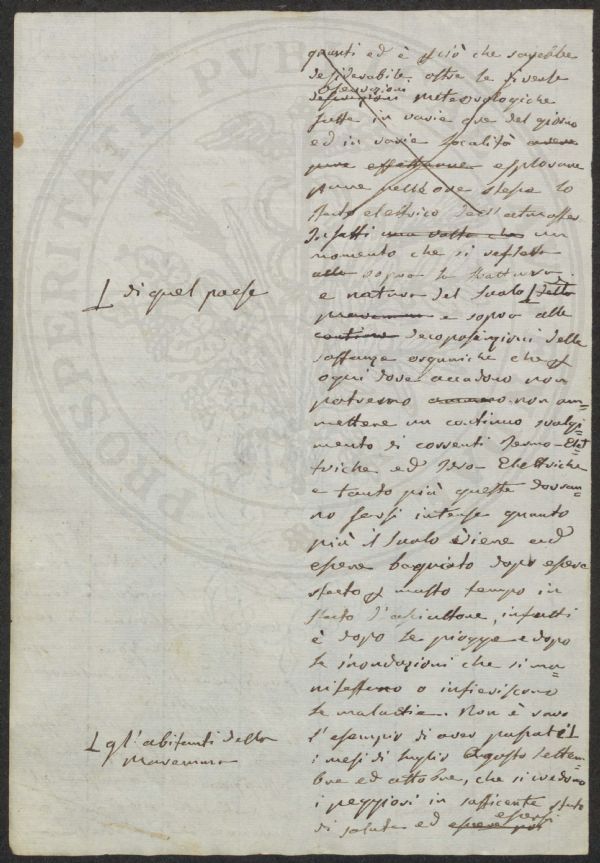 quanti ed è p ciò che sarebbe
desiderabile oltre le
osservazioni
meteorologiche
fatte in varie ore del giorno
ed in varie località avere
pure effettuare esplorare
pure nelle ore stesse lo
stato elettrico dell'atmosfera
Infatti una volta che un
momento che si rifletta
alla sopra la struttura
e natura del Suolo della
Maremma e sopra alle
continue decoposizioni delle
sostanze organiche che p
ogni dove accadono non
potremo non am=
mettere un continuo svolgi=
mento di correnti Termo-Elet
triche ed Idro-Elettriche
e tanto più queste dovran=
no farsi intense quanto
più il Suolo viene ad
essere bagnato dopo essere
stato p molto tempo in
stato d'asciuttore, infatti
è dopo le piogge e dopo
le inondazioni che si ma=
nifestano o infieriscono
le malattie. Non è raro
l'esempio di aver passati
i mesi di Luglio Agosto Settem=
bre ed ottobre, che si credono
i peggiori in sufficente stato
di salute ed essere poi
essersi
di quel paese
gl'abitanti della
Maremma
PROSPERITATI PUB